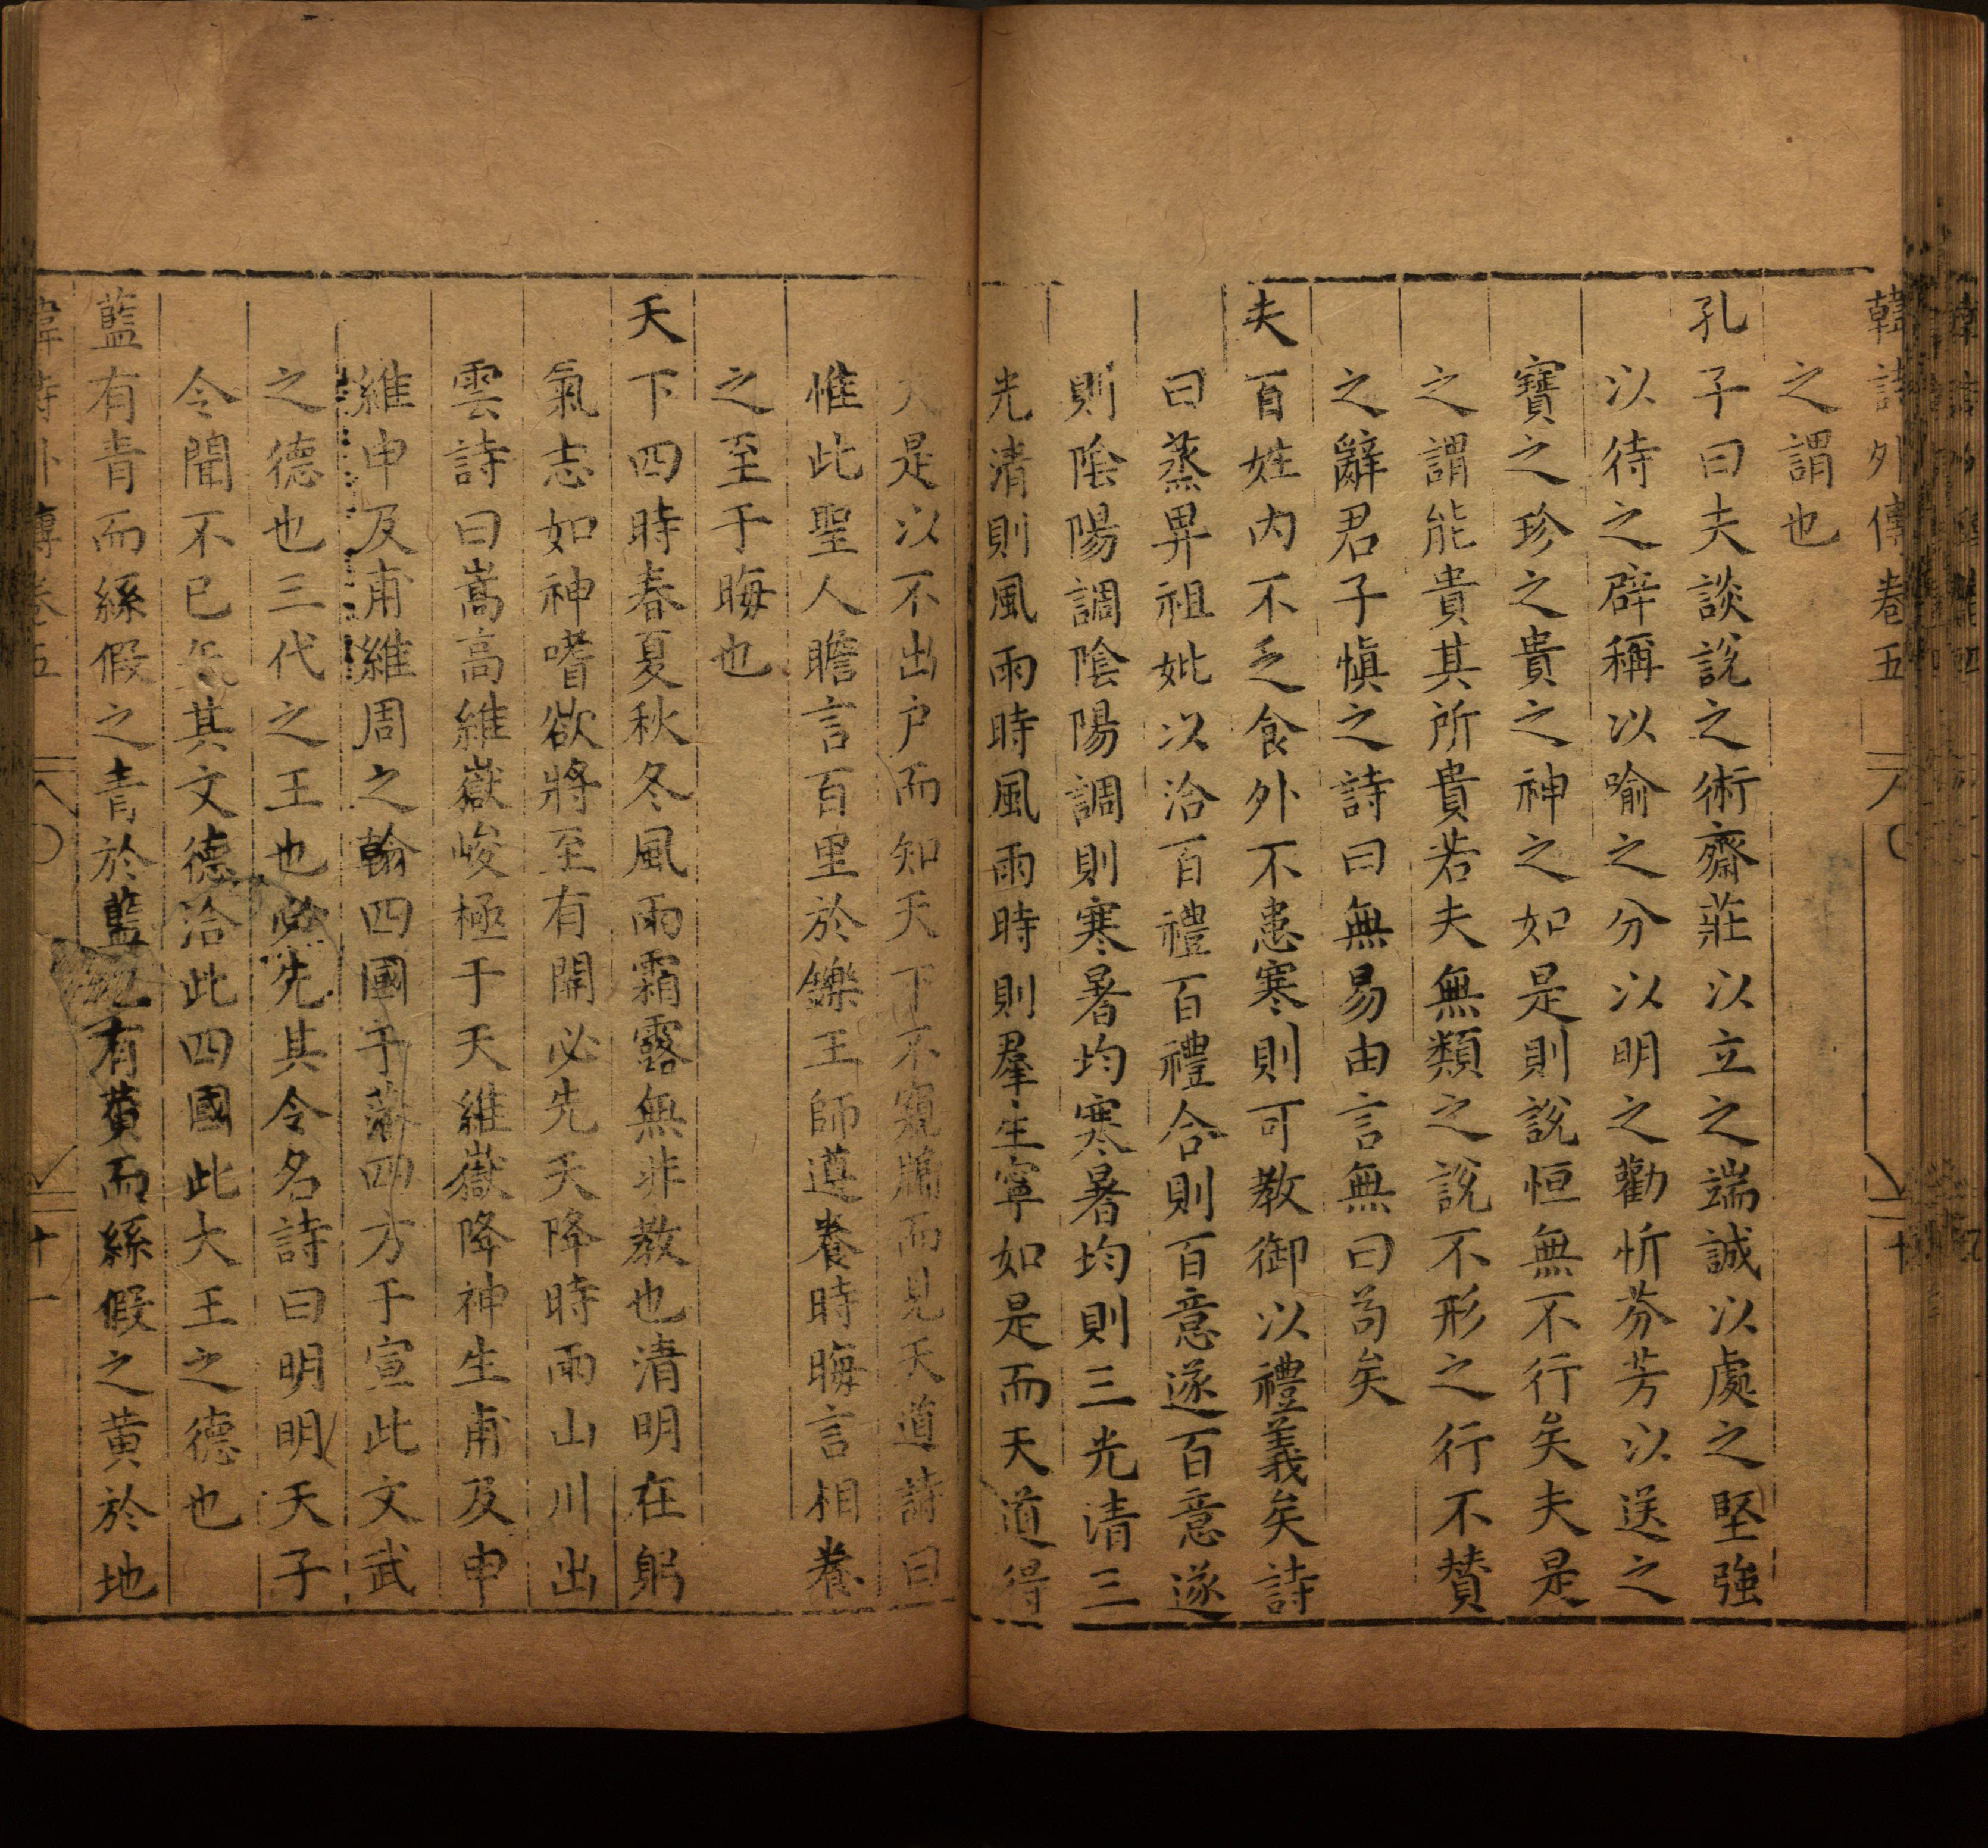 韓詩外傳卷五
十
之謂也
孔子曰夫談說之術齋莊以立之端誠以處之堅強
以待之辟稱以喻之分以明之勸忻芬芳以送之
寶之珍之貴之神之如是則說恒無不行矣夫是
之謂能貴其所貴若夫無類之說不形之行不贊
之辭君子慎之詩曰無易由言無曰苟矣
夫百姓內不乏食外不患寒則可教御以禮義矣詩
曰蒸畀祖妣以洽百禮百禮合則百意遂百意遂
則陰陽調陰陽調則寒暑均寒暑均則三光清三
光清則風雨時風雨時則羣生寧如是而天道得
矣是以不出户而知天下不窺牖而見天道詩曰
惟此聖人瞻言百里於鑠王師遵養時晦言相養
之至于晦也
天下四時春夏秋冬風雨霜露無非教也清明在躬
氣志如神嗜欲將至有開必先天降時雨山川出
雲詩曰嵩高維嶽峻極于天維嶽降神生甫及申
維申及甫維周之翰四國于蕃四方于宣此文武
之德也三代之王也必先其令名詩曰明明天子
令聞不已矢其文德洽此四國此大王之德也
藍有青而絲假之青於藍地有黃而絲假之黃於地
韓詩外傳卷五
十一